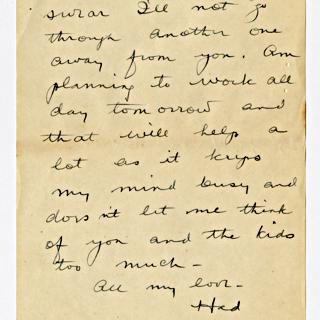 swear I'll not go
through another one
away from you. Am
planning to work all
day tomorrow and
that will help a
lot as it keeps
my mind busy and
doesn't let me think
of you and the kids
too much -
All my love -
Hed